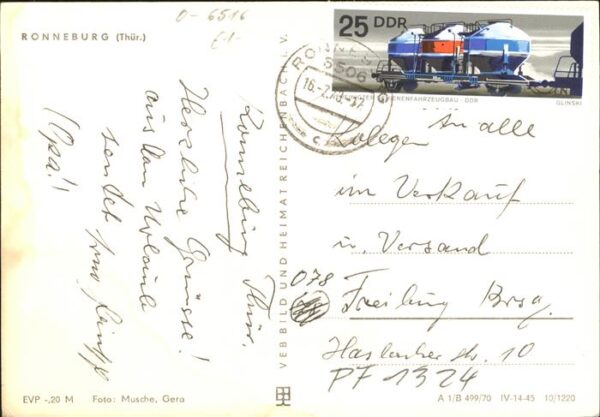 O-6516
RONNEBURG (Thür.)
Ronneburg Thür.
Herzliche Grüsse!
aus dem Urlaub
sendet
(Opa!)
EVP -,20 M Foto: Musche, Gera
VEB BILD UND HEIMAT REICHENBACH I. V.
25 DDR
SCHIENENFAHRZEUGBAU · DDR
GLINSKI
RONNEBURG
6506
An alle
Kolegen
im Verkauf
u. Versand
078
Freiburg Brsg.
Haslacher Str. 10
PF 1324
A 1/B 499/70 IV-14-45 10/1220